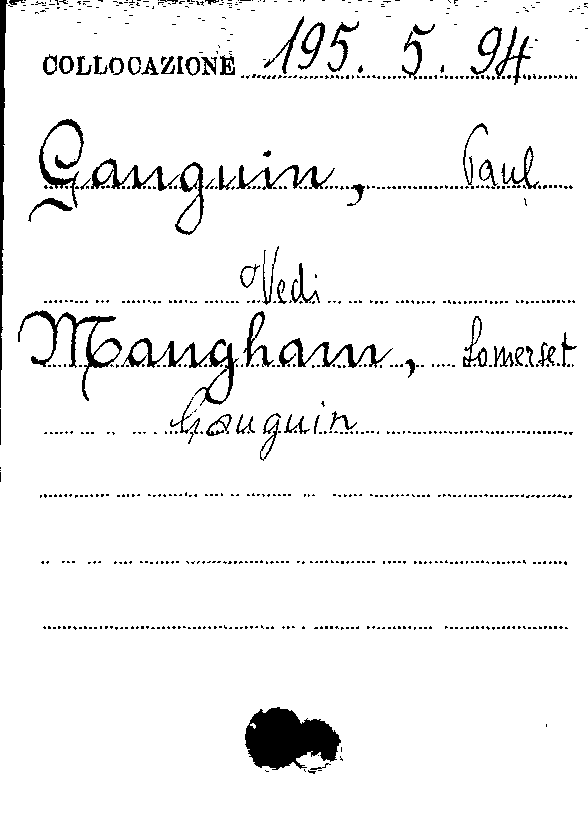 COLLOCAZIONE 195. 5. 94
Gauguin, Paul
Vedi
Maugham, Somerset
Gauguin